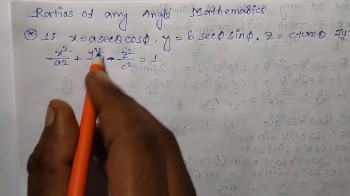 Ratios of any Angle Mathematics
* If x = a secθ cosϕ, y = b secθ sinϕ, z = c tanθ
x²/a² + y² - z²/c² = 1